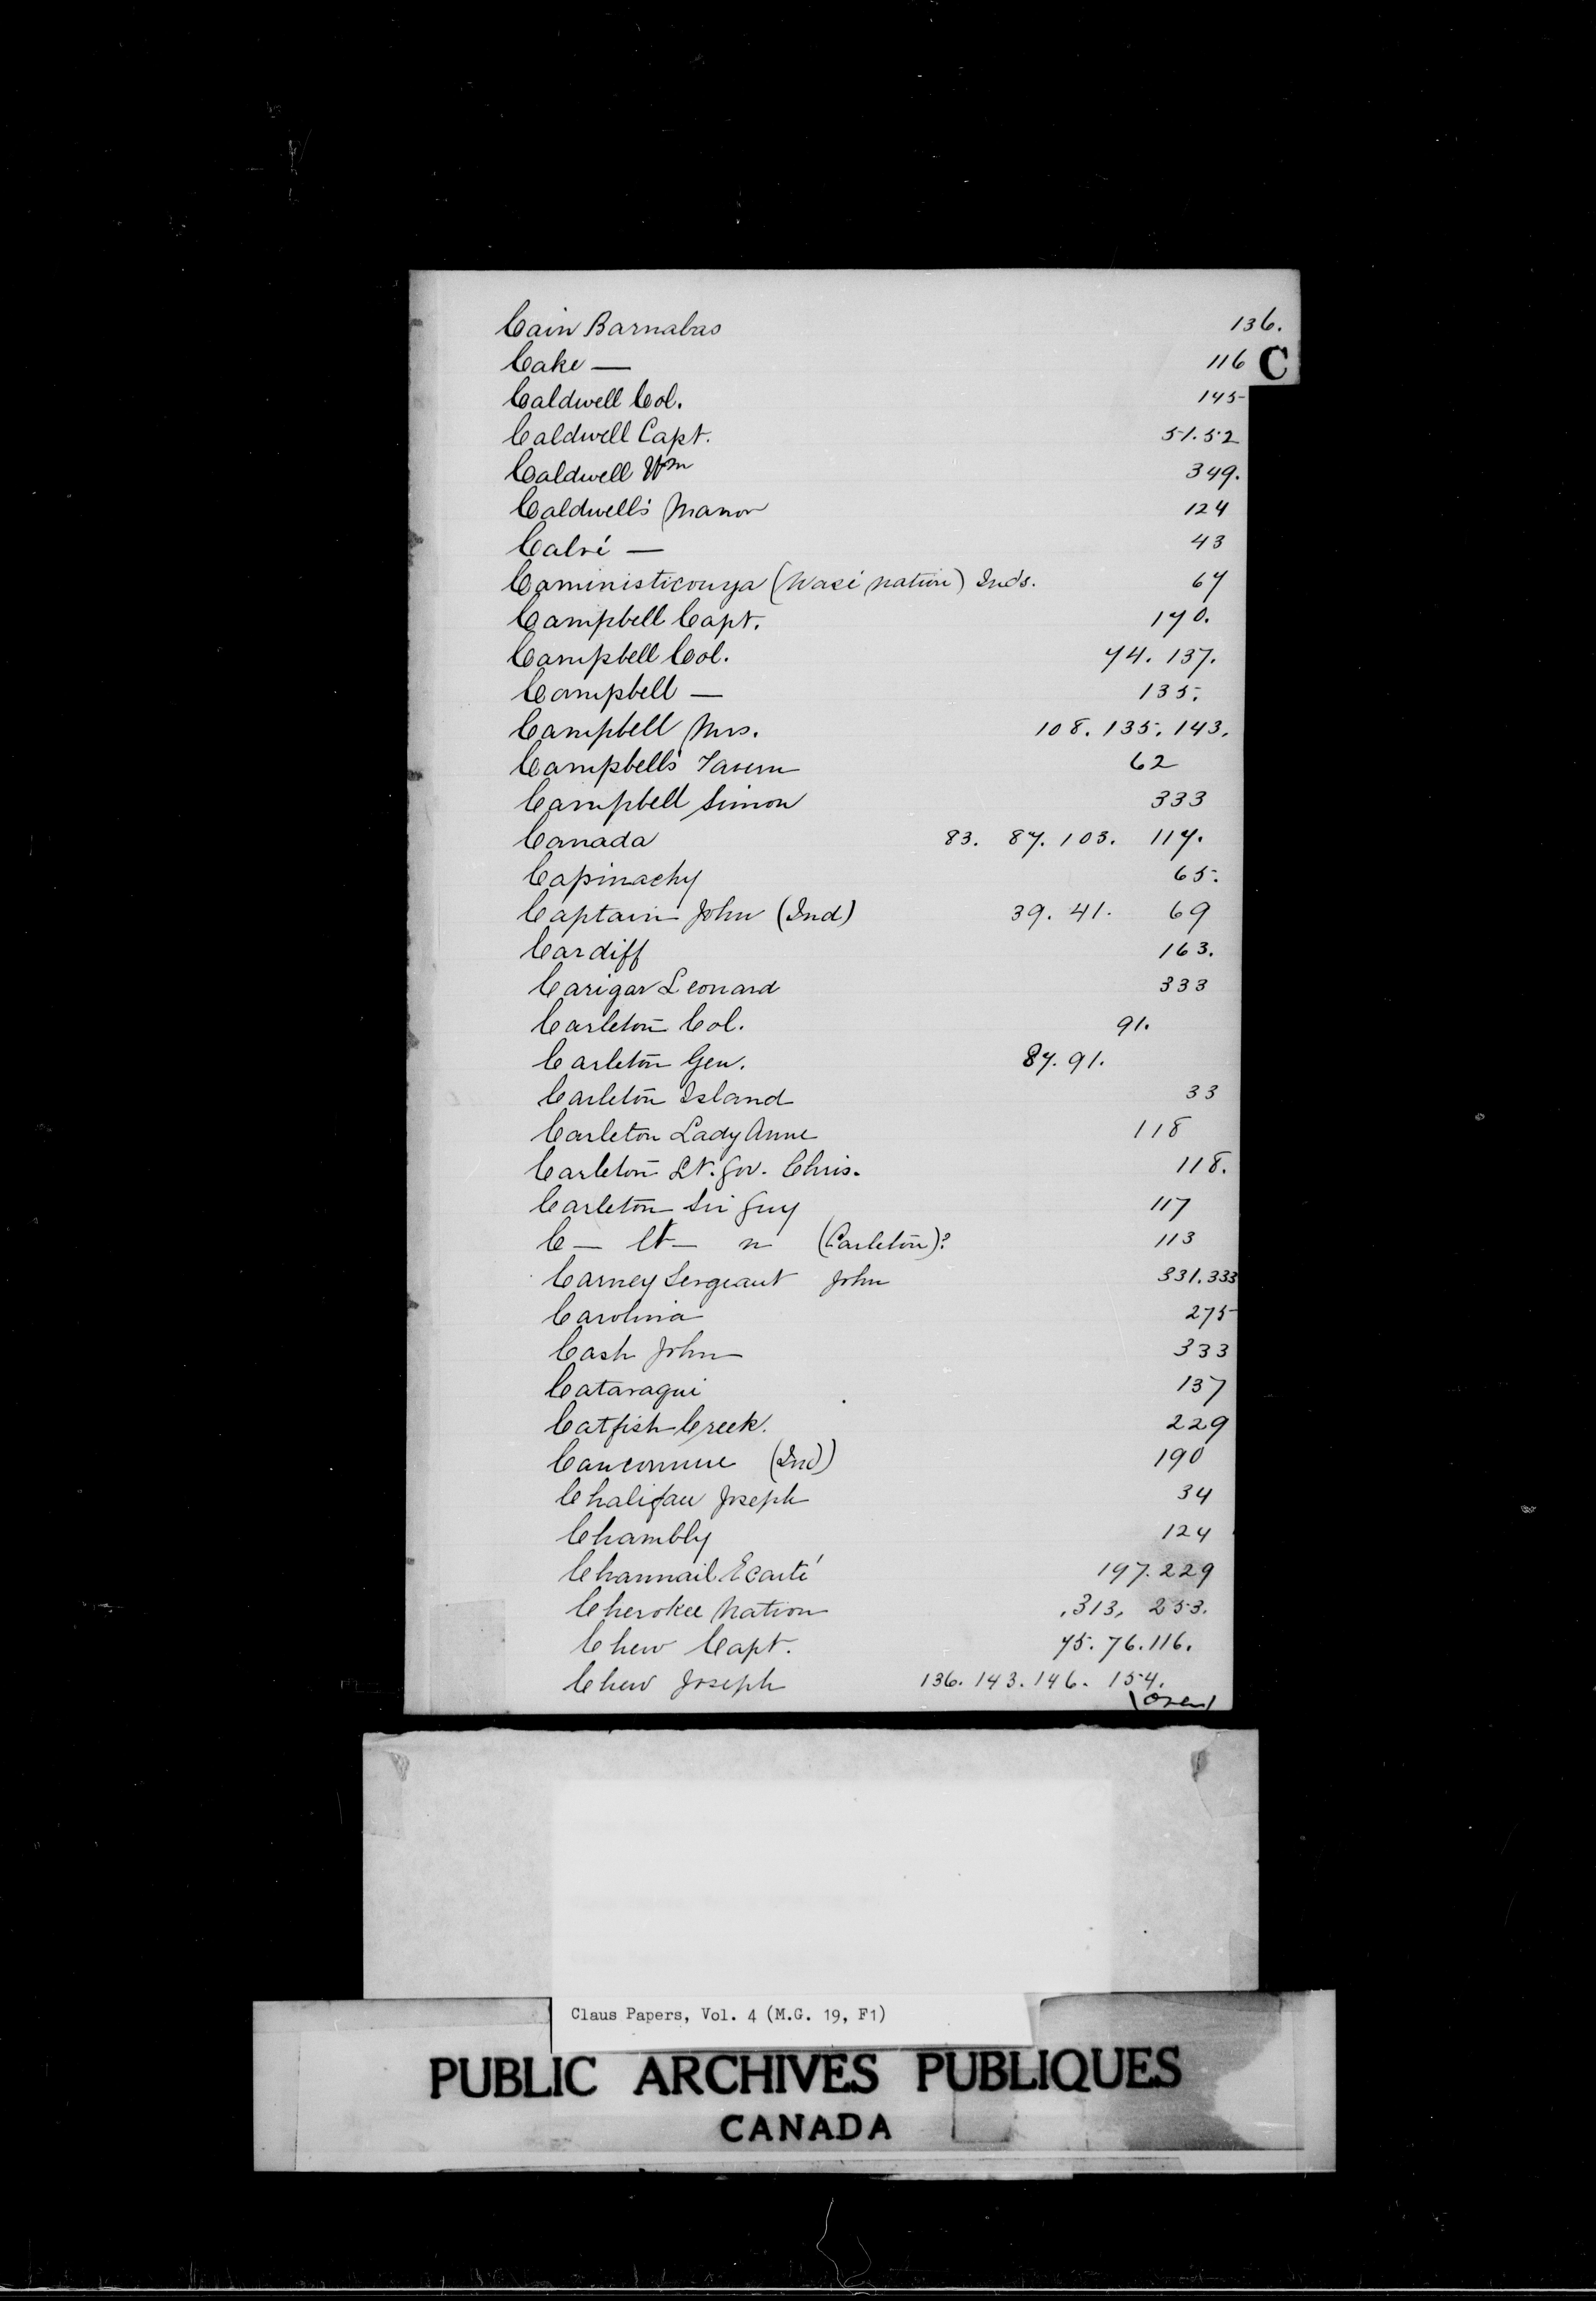 Cain Barnabas 136.
C
Cake — 116
Caldwell Col. 145
Caldwell Capt. 51.52
Caldwell Wm 349.
Caldwell's Manor 124
Calvé — 43
Caministicouya (Nasé nation) Inds. 67
Campbell Capt. 170.
Campbell Col. 74. 137.
Campbell — 135.
Campbell Mrs. 108. 135. 143.
Campbell's Tavern 62
Campbell Simon 333
Canada 83. 87. 103. 117.
Capinachy 65.
Captain John (Ind) 39. 41. 69
Cardiff 163.
Carigar Leonard 333
Carleton Col. 91.
Carleton Gen. 87. 91.
Carleton Island 33
Carleton Lady Anne 118
Carleton Lt. Gov. Chris. 118.
Carleton Sir Guy 117
C — lt — n (Carleton)? 113
Carney Sergeant John 331. 333
Carolina 275
Cash John 333
Cataraqui 137
Catfish Creek. 229
(Ind) 190
Chalifau Joseph 34
Chambly 124
Channail Ecarté 197. 229
Cherokee Nation 313, 253.
Chew Capt. 75. 76. 116.
Chew Joseph 136. 143. 146. 154.
(over)
Claus Papers, Vol. 4 (M.G. 19, F1)
PUBLIC ARCHIVES PUBLIQUES
CANADA